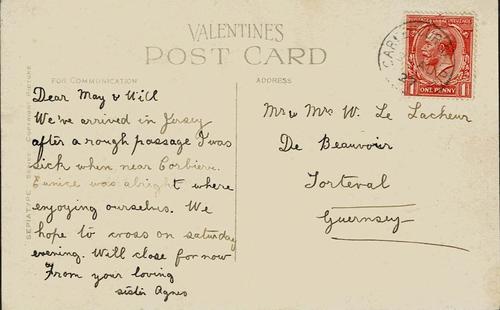 VALENTINES
POST CARD
FOR COMMUNICATION
ADDRESS
Dear May & Will
We've arrived in Jersey
after a rough passage I was
sick when near Corbiere.
Eunice was alright where
enjoying ourselves. We
hope to cross on saturday
evening. Will close for now
From your loving
sister Agnes
Mr & Mrs W. Le Lacheur
De Beauvoir
Torteval
Guernsey
ONE PENNY
1 1